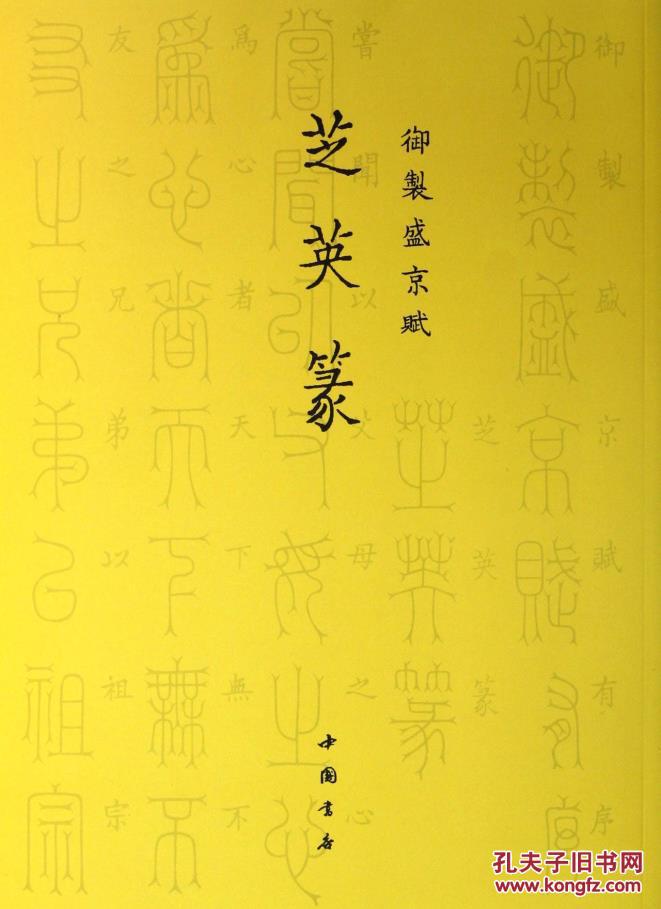 御製盛京賦
芝英篆
中國書店
御製盛京賦有序
芝英篆
嘗聞以父母之心
為心者天下無不
友之兄弟以祖宗
孔夫子旧书网
www.kongfz.com